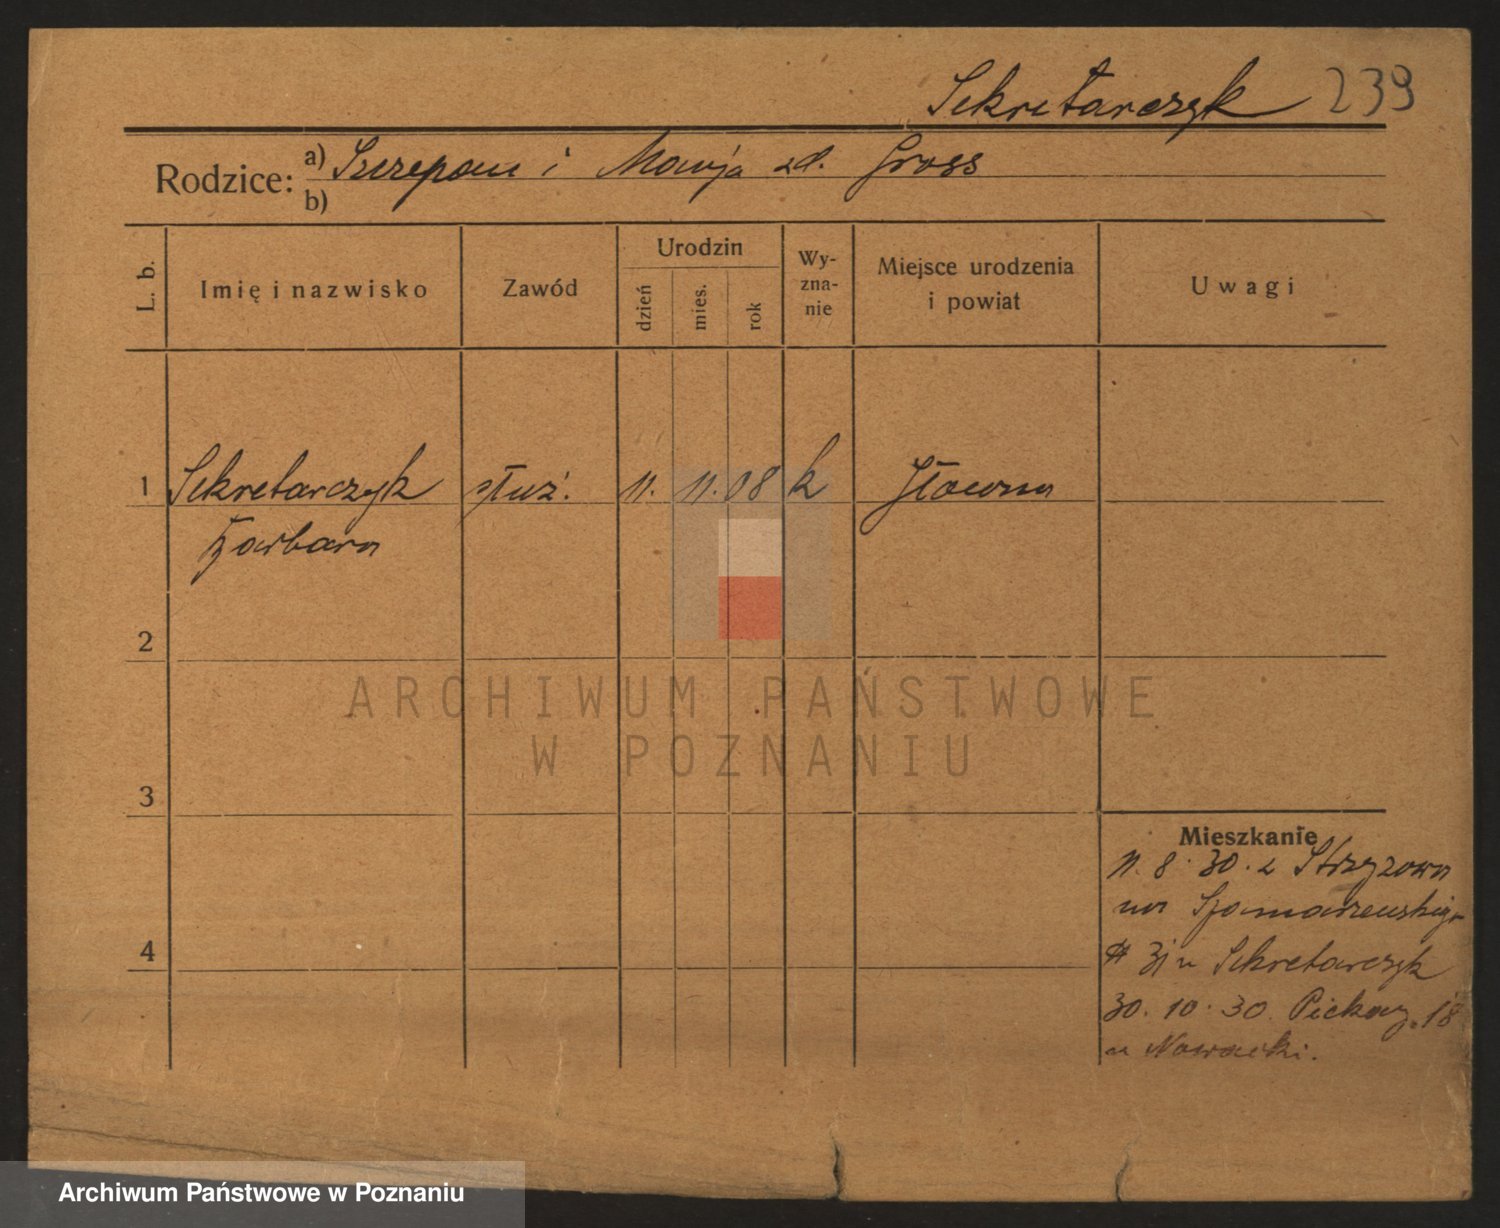 Sekretarczyk 239
Rodzice: a) Szczepan i Marija zd. Gross
b)
L. b. Imię i nazwisko Zawód Urodzin dzień mies. rok Wy-zna-nie Miejsce urodzenia i powiat Uwagi
1 Sekretarczyk służ. 11. 11. 08 k Główna
Barbara
2
ARCHIWUM PAŃSTWOWE
W POZNANIU
3
Mieszkanie
11. 8. 30. z Strzyżowa
na
4
31 u Sekretarczyk
30. 10. 30. Piekary 18
u Nowacki.
Archiwum Państwowe w Poznaniu